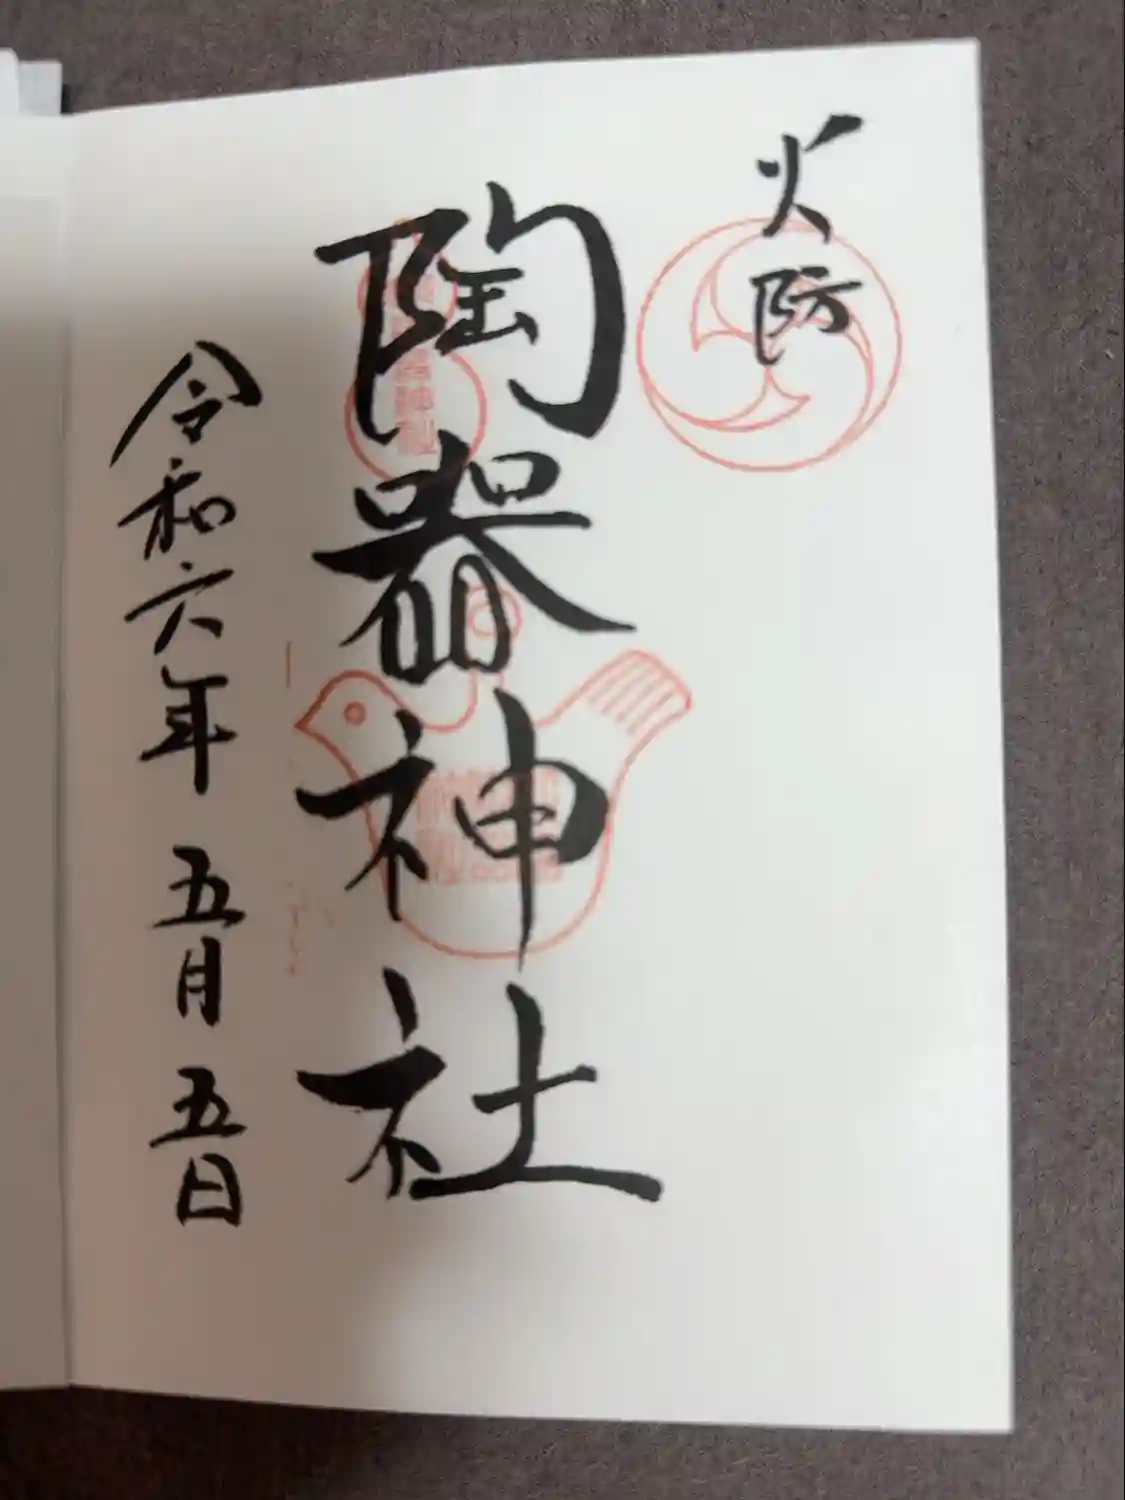 火防
陶器神社
令和六年 五月 五日